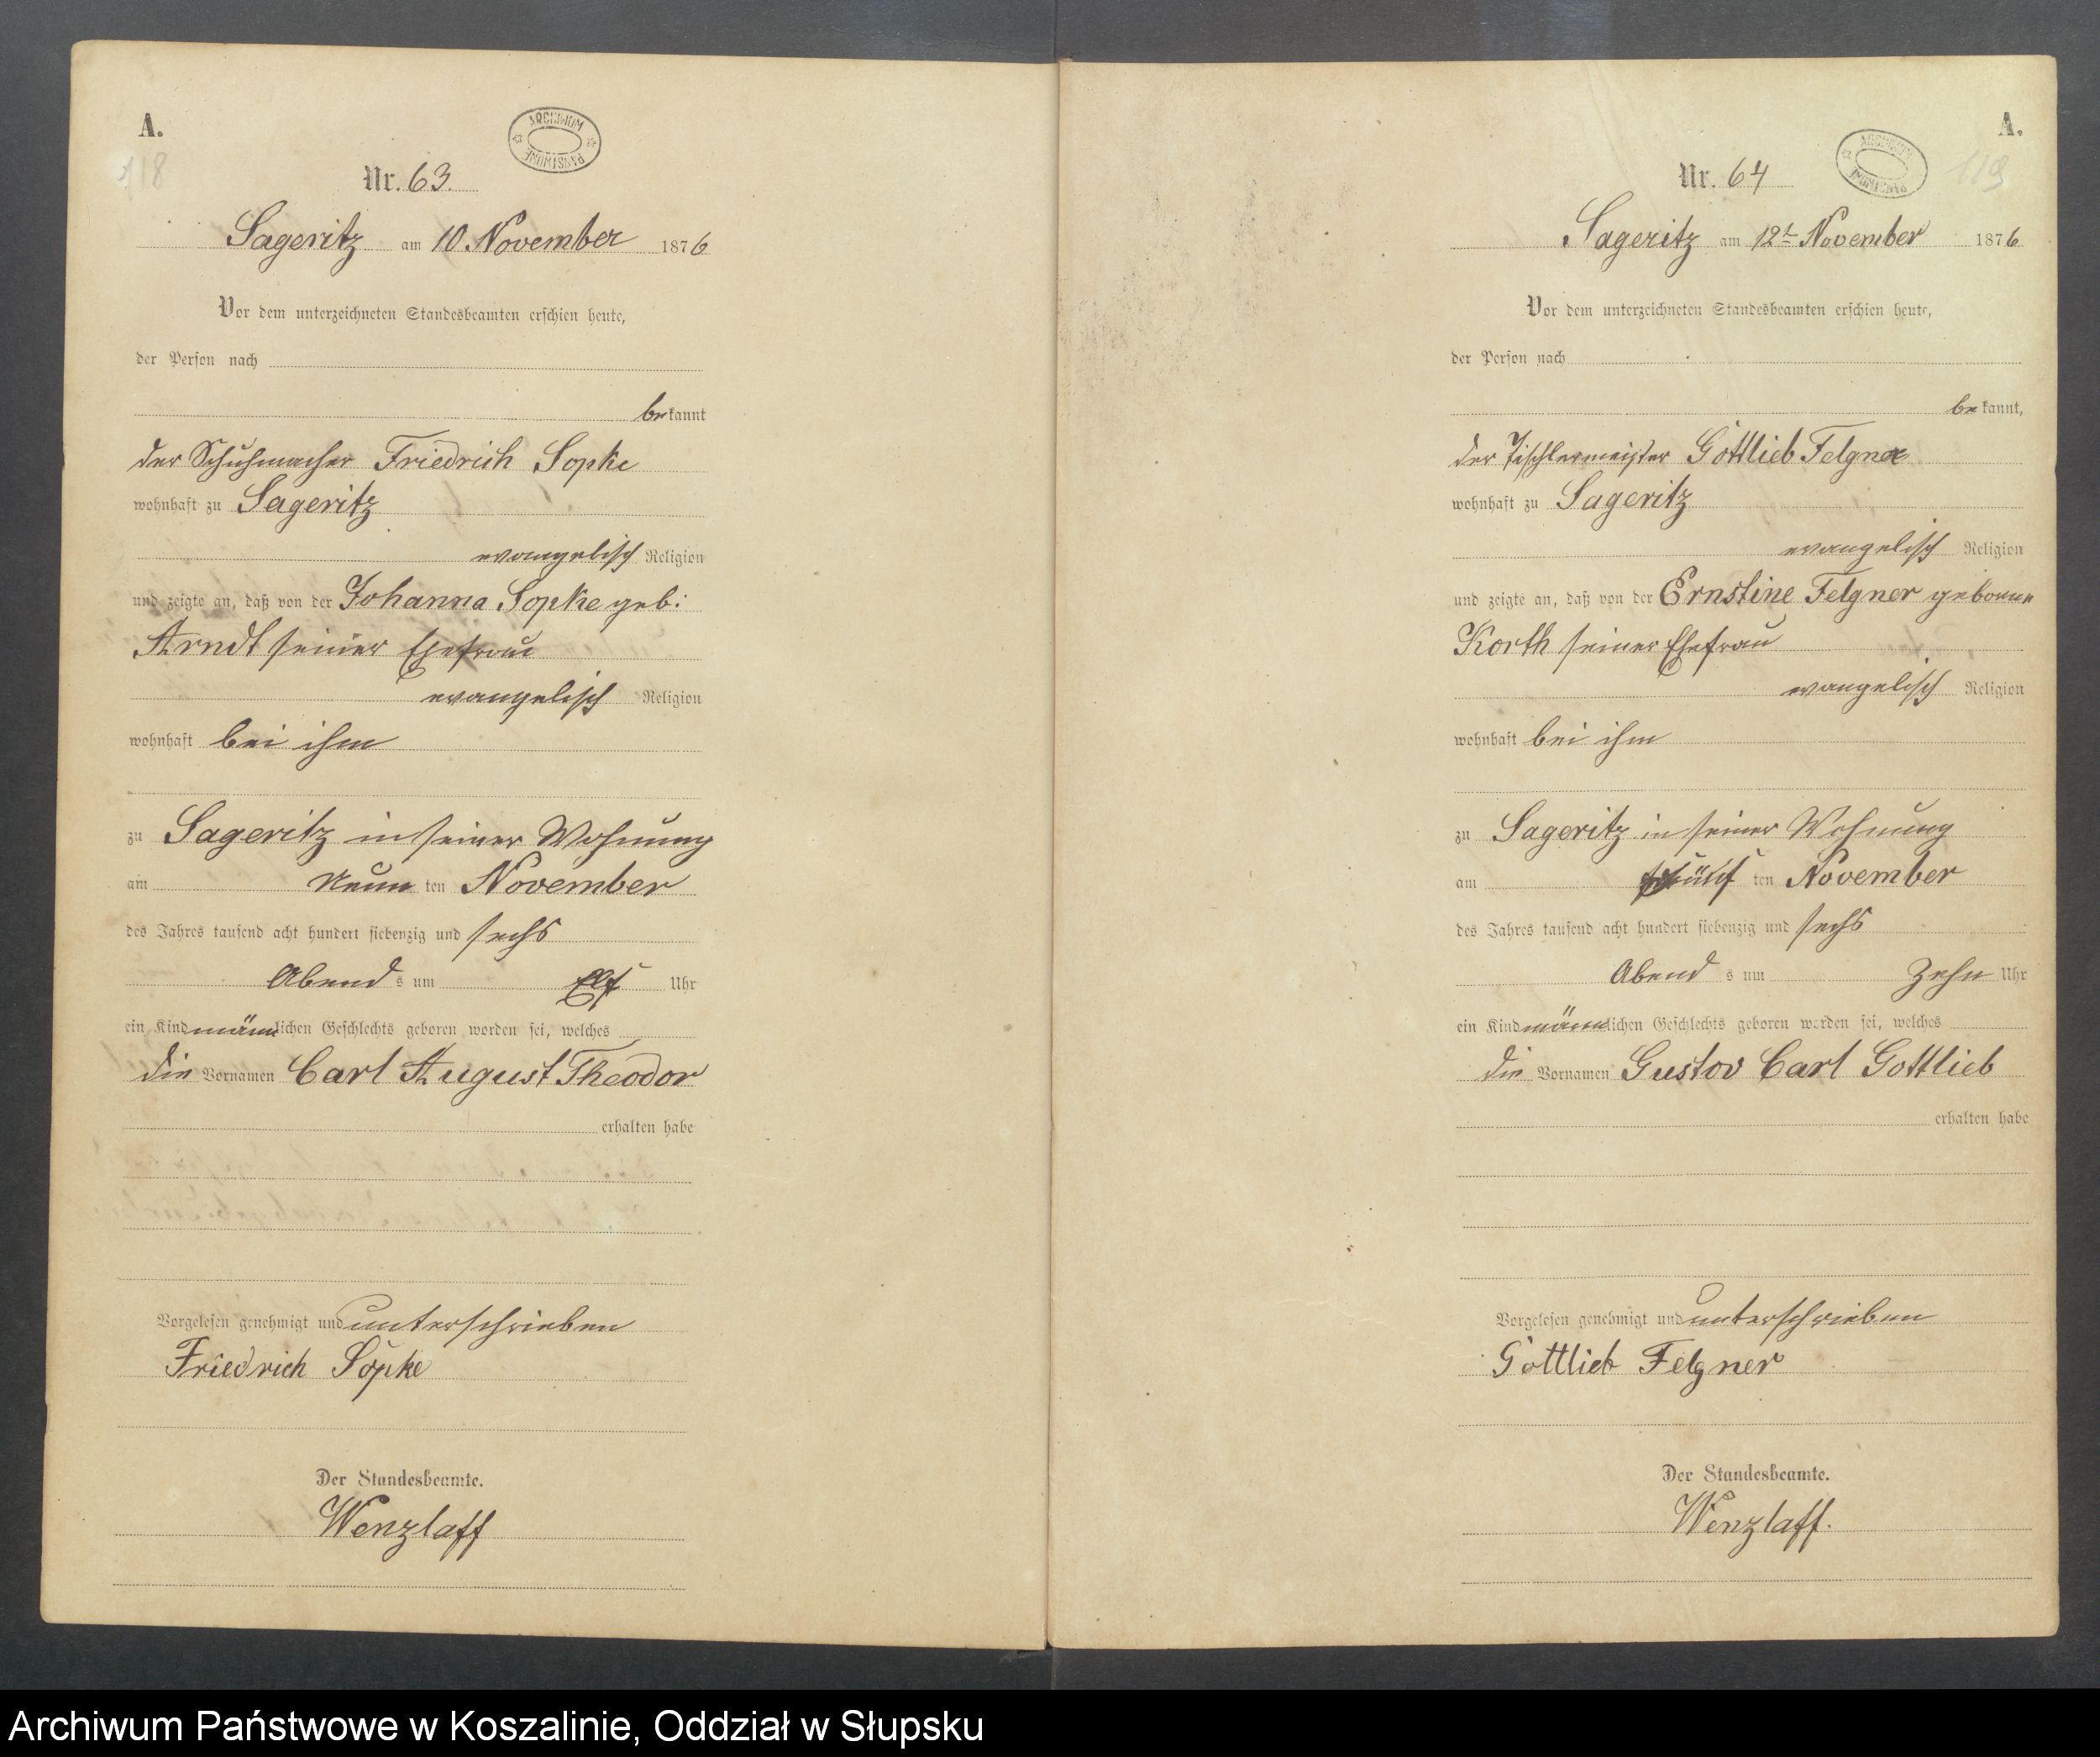 A.
118
ARCHIWUM PAŃSTWOWE
Nr. 63.
Sageritz am 10 November 1876
Vor dem unterzeichneten Standesbeamten erschien heute,
der Person nach
bekannt
der Schuhmacher Friedrich Sopke
wohnhaft zu Sageritz
evangelisch Religion
und zeigte an, daß von der Johanna Sopke geb:
Arndt seiner Ehefrau
evangelisch Religion
wohnhaft bei ihm
zu Sageritz in seiner Wohnung
am Neun ten November
des Jahres tausend acht hundert siebenzig und sechs
Abend s um Elf Uhr
ein Kind männlichen Geschlechts geboren worden sei, welches
die Vornamen Carl August Theodor
erhalten habe
Vorgelesen genehmigt und unterschrieben
Friedrich Sopke
Der Standesbeamte.
Wenzlaff
A.
119
ARCHIWUM
Nr. 64
Sageritz am 12t November 1876
Vor dem unterzeichneten Standesbeamten erschien heute,
der Person nach
bekannt,
der Tischlermeister Gottlieb Felgner
wohnhaft zu Sageritz
evangelisch Religion
und zeigte an, daß von der Ernstine Felgner geborene
Korth seiner Ehefrau
evangelisch Religion
wohnhaft bei ihm
zu Sageritz in seiner Wohnung
am fünf ten November
des Jahres tausend acht hundert siebenzig und sechs
Abend s um Zehn Uhr
ein Kind männlichen Geschlechts geboren worden sei, welches
die Vornamen Gustav Carl Gottlieb
erhalten habe
Vorgelesen genehmigt und unterschrieben
Gottlieb Felgner
Der Standesbeamte.
Wenzlaff.
Archiwum Państwowe w Koszalinie, Oddział w Słupsku